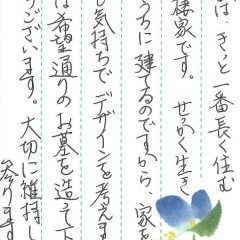 は、きっと一番長く住む
棲家です。せっかく生き
うちに建てるのですから、家を
し気持ちでデザインを考えま
は希望通りのお墓を造って下
うございます。大切に維持し
参ります